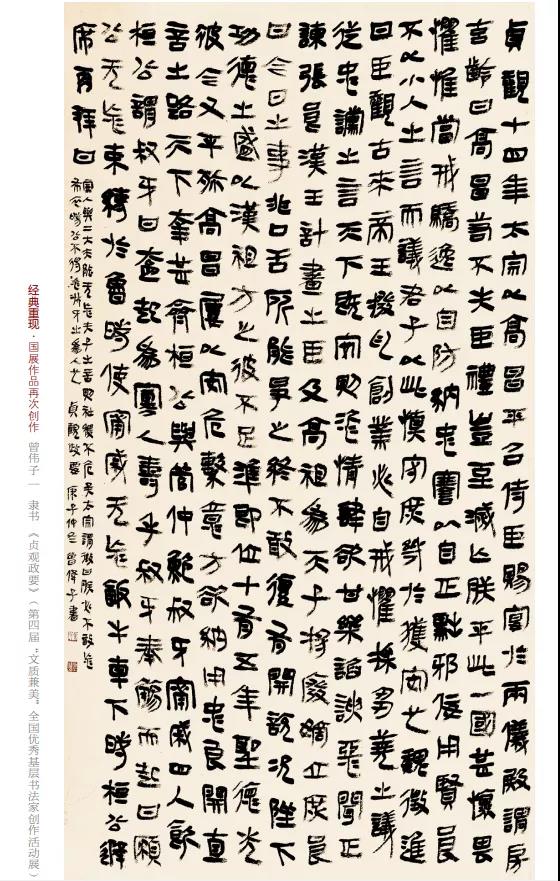 貞觀十四年太宗以高昌平召侍臣賜宴於兩儀殿謂房
玄齡曰高昌若不失臣禮豈至滅亡朕平此一國甚懷畏
懼惟當戒驕逸以自防納忠謇以自正黜邪佞用賢良
不以小人之言而議君子以此慎守庶幾於獲安也魏徵進
曰臣觀古來帝王撥亂創業必自戒懼採芻蕘之議
從忠讜之言天下既安則恣情肆欲甘樂諂諛惡聞正
諫張良漢王計畫之臣及高祖為天子將廢嫡立庶良
曰今日之事非口舌所能爭也終不敢復有開說況陛下
功德之盛以漢祖方之彼不足準即位十有五年聖德光
被今又平殄高昌屢以安危繫意方欲納用忠良開直
言之路天下幸甚齊桓公與管仲鮑叔牙甯戚四人飲
桓公謂叔牙曰盍起為寡人壽乎叔牙奉觴而起曰願
公无忘束縛於魯時使甯戚无忘飯牛車下時桓公避
席再拜曰
寡人與二大夫能无忘夫子之言則社稷不危矣太宗謂徵曰朕必不敢忘
布衣時公不得忘叔牙之為人也 貞觀政要 庚子仲冬 曾偉子書
经典重现·国展作品再次创作 曾伟子 — 隶书 《贞观政要》(第四届“文质兼美”全国优秀基层书法家创作活动展)